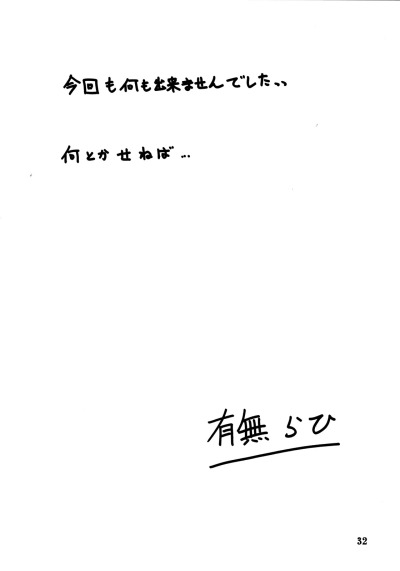 今回も何も出来ませんでした、、
何とかせねば...
有無らひ
32